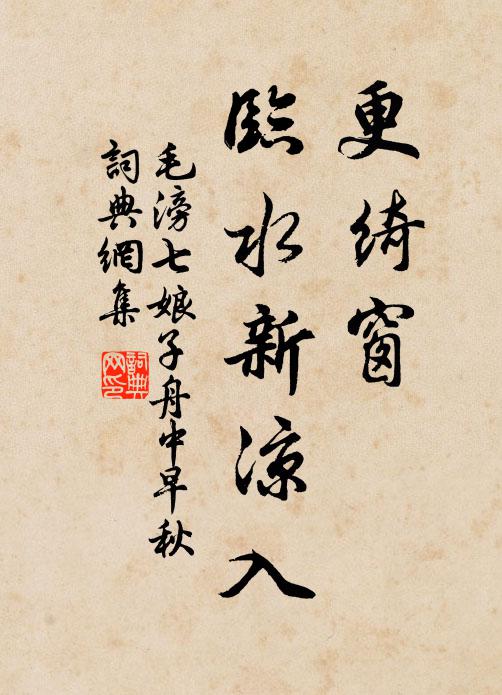 更綺窗
臨水新涼入
毛滂七娘子舟中早秋
詞典網集
詞典网印